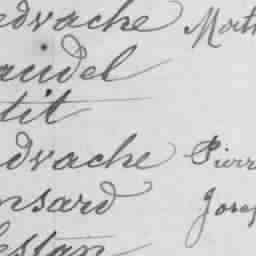 edvache Math
audel
tit
dvache Pierr
nsard Josep
estan